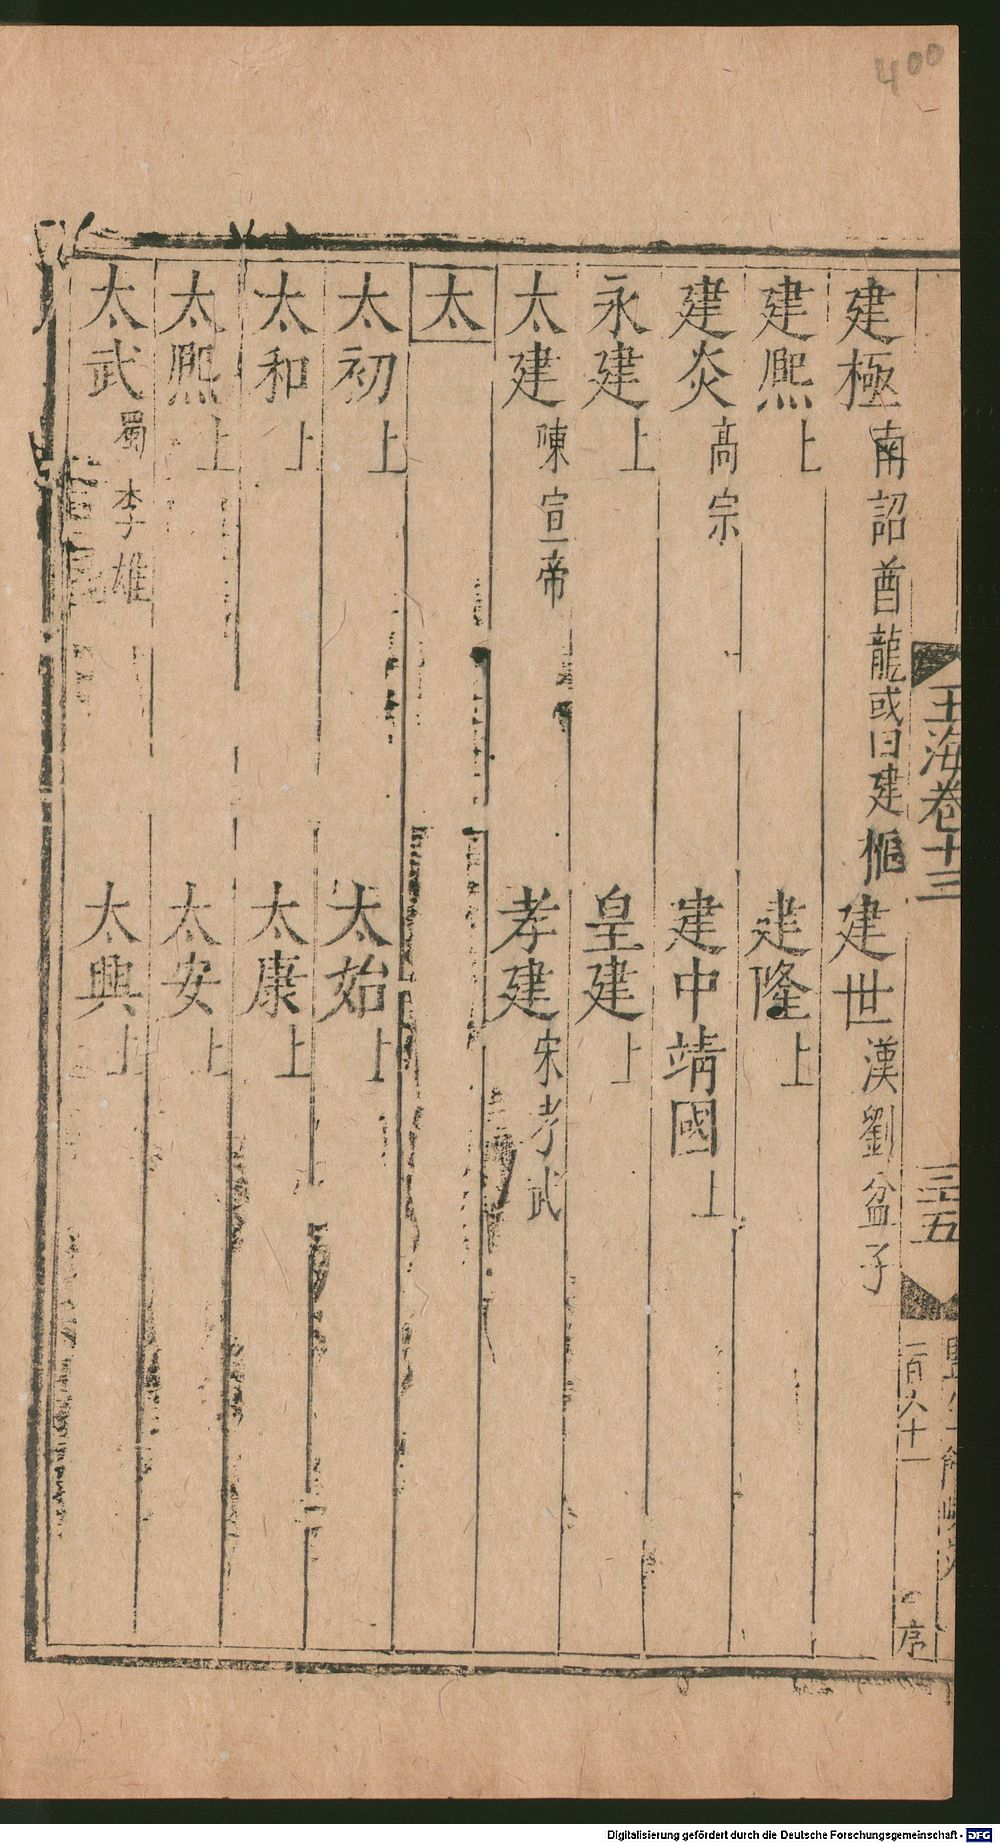 400
玉海卷十三
三五
一百八十一
序
建極南詔酋龍或曰建極 建世漢劉盆子
建熈上 建隆上
建炎髙宗 建中靖國上
永建上 皇建上
太建陳宣帝 孝建宋孝武
太
太初上 太始上
太和上 太康上
太熈上 太安上
太武蜀李雄 太興上
Digitalisierung gefördert durch die Deutsche Forschungsgemeinschaft - DFG